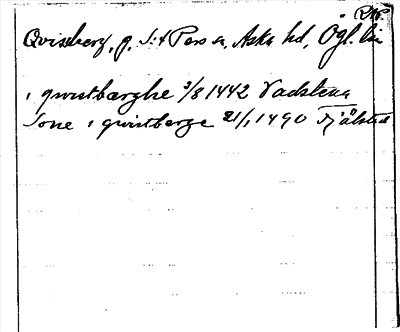 RAP.
Qvissberg, g. S:t Pers sn, Aska hd, Ögl. län
i qwistbærghe 3/8 1442 Vadstena
Jone i qwistberge 21/1 1490 Fjälsted